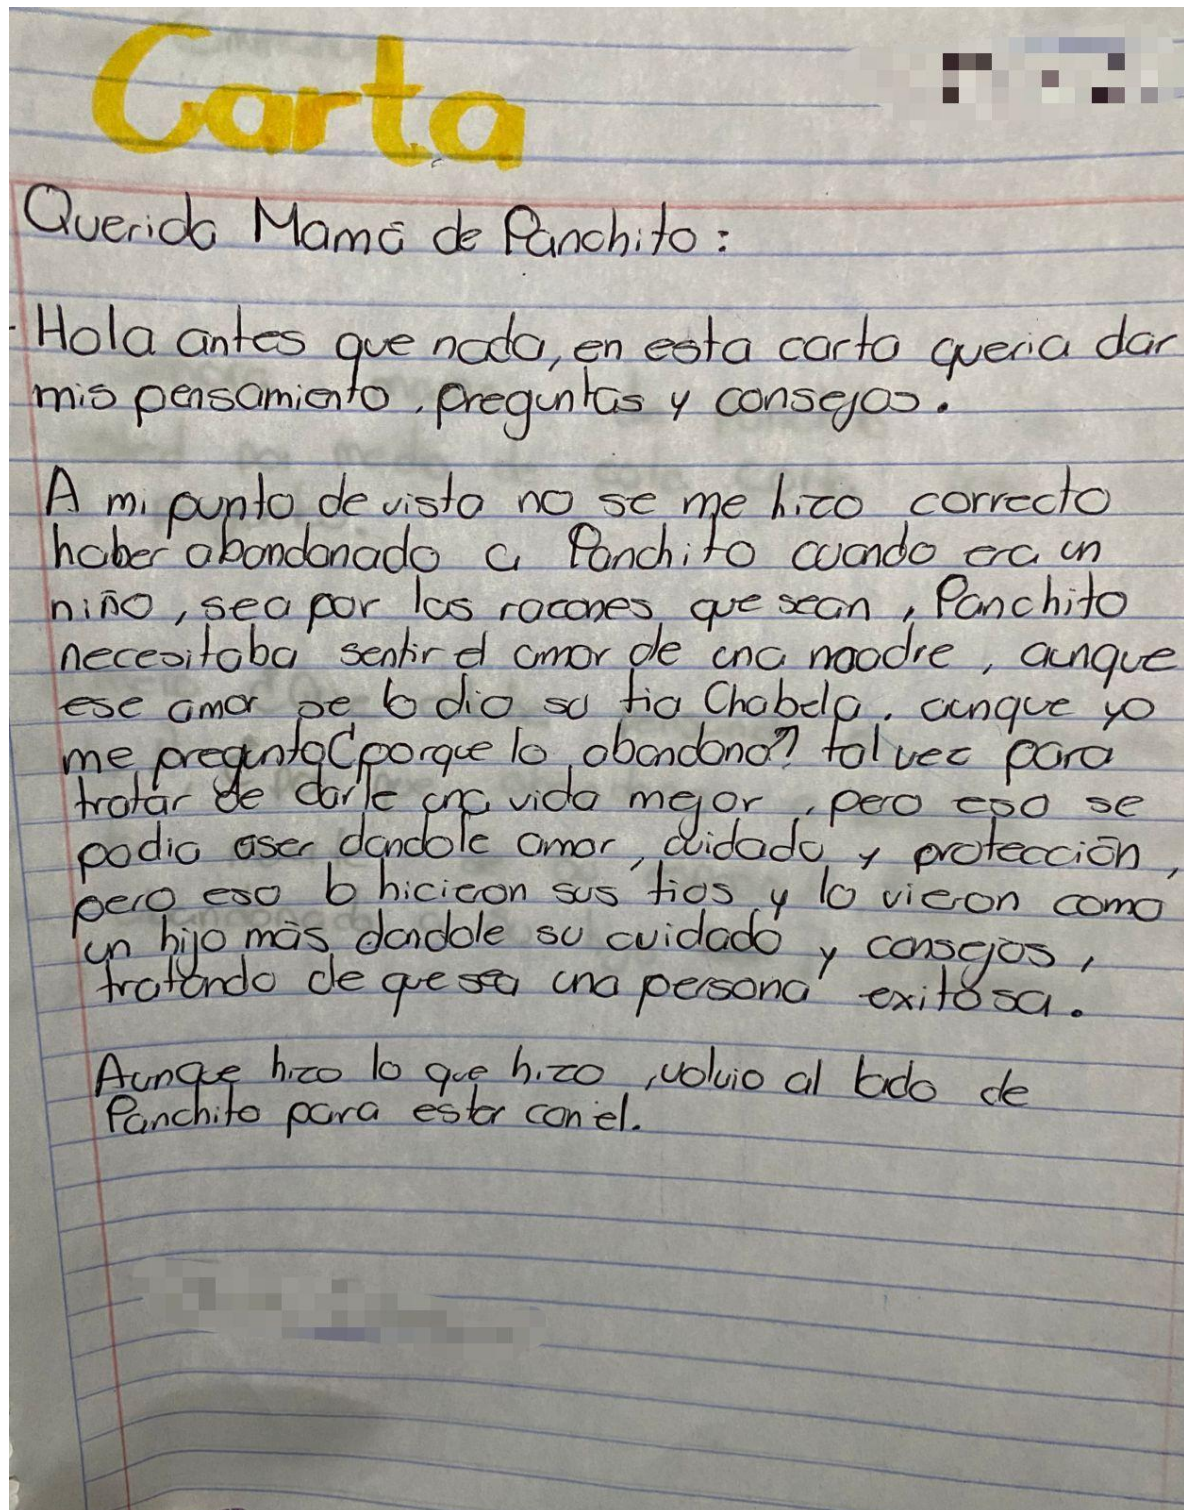 Carta
Querida Mamá de Panchito:
- Hola antes que nada, en esta carta queria dar
mis pensamiento, preguntas y consejos.
A mi punto de vista no se me hizo correcto
haber abandonado a Panchito cuando era un
niño, sea por las racones que sean, Panchito
necesitaba sentir el amor de una madre, aunque
ese amor se lo dio su tia Chabela, aunque yo
me pregunto ¿porque lo abandono? tal vez para
tratar de darle una vida mejor, pero eso se
podia aser dandole amor, cuidado y protección,
pero eso lo hicieon sus tios y lo vieron como
un hijo más dandole su cuidado y consejos,
tratando de que sea una persona exitosa.
Aunque hizo lo que hizo, volvio al lado de
Panchito para estar con el.